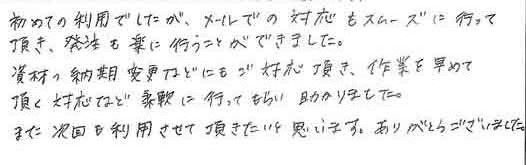 初めての利用でしたが、メールでの対応もスムーズに行って
頂き、発注も楽に行うことができました。
資材の納期変更などにもご対応頂き、作業を早めて
頂く対応など柔軟に行ってもらい助かりました。
また次回も利用させて頂きたいと思います。ありがとうございました。